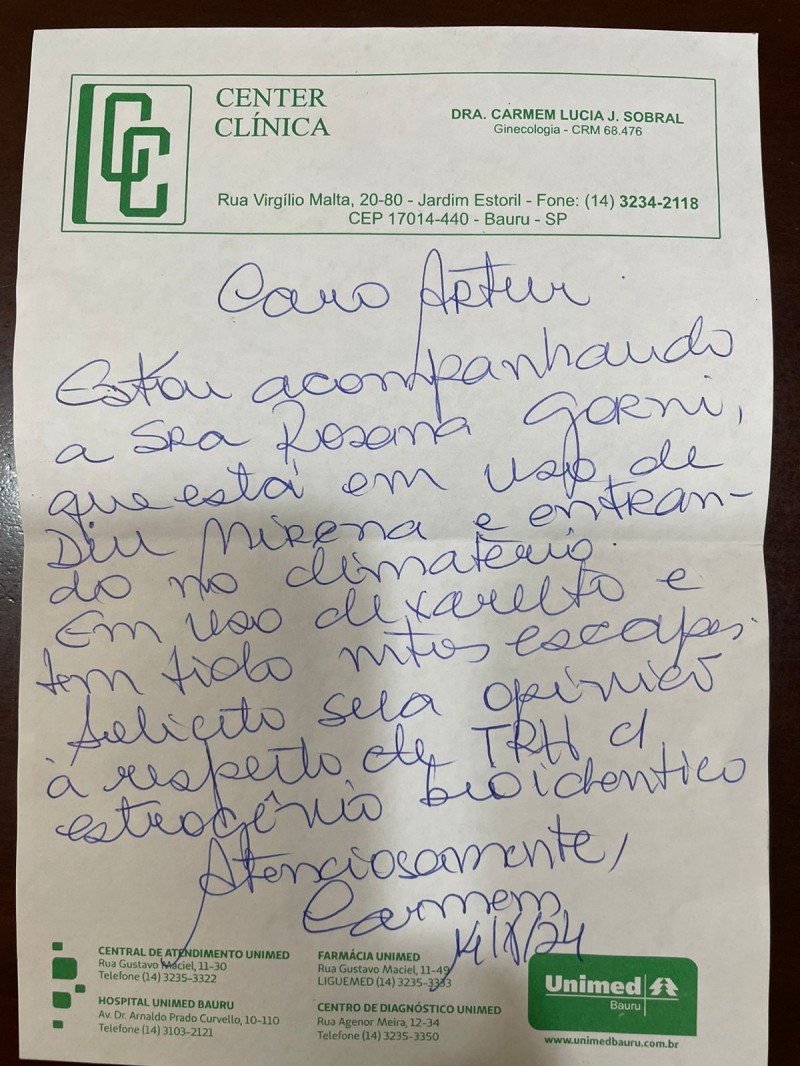 CENTER
CLÍNICA
DRA. CARMEM LUCIA J. SOBRAL
Ginecologia - CRM 68.476
Rua Virgílio Malta, 20-80 - Jardim Estoril - Fone: (14) 3234-2118
CEP 17014-440 - Bauru - SP
Caro Artur
Estou acompanhando
a Sra Rosana Gorni,
que está em uso de
Diu Mirena e entran-
do no climatério.
Em uso de xarelto e
tem tido mtos escapes.
Solicito sua opinião
à respeito de TRH c/
estrogênio bioidentico
Atenciosamente,
Carmem
14/X/24
CENTRAL DE ATENDIMENTO UNIMED
Rua Gustavo Maciel, 11-30
Telefone (14) 3235-3322
HOSPITAL UNIMED BAURU
Av. Dr. Arnaldo Prado Curvello, 10-110
Telefone (14) 3103-2121
FARMÁCIA UNIMED
Rua Gustavo Maciel, 11-49
LIGUEMED (14) 3235-3333
CENTRO DE DIAGNÓSTICO UNIMED
Rua Agenor Meira, 12-34
Telefone (14) 3235-3350
Unimed
Bauru
www.unimedbauru.com.br